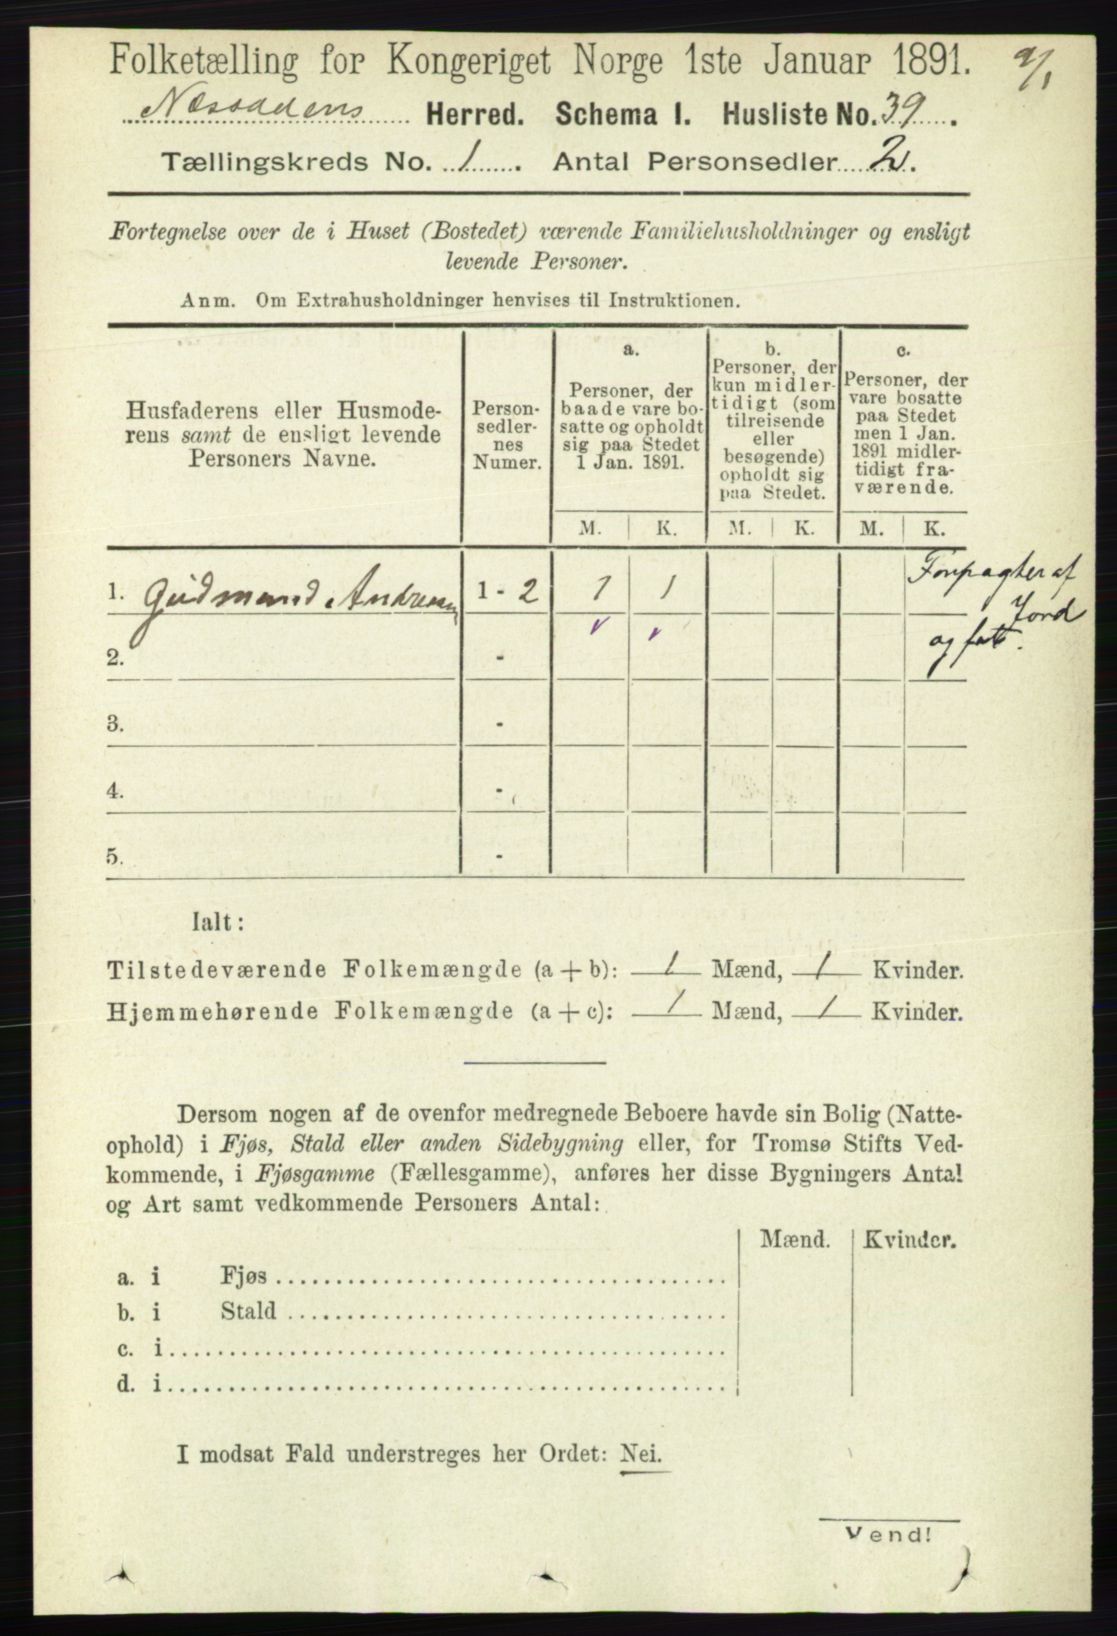 Folketælling for Kongeriget Norge 1ste Januar 1891.
9/1
Næsoddens Herred. Schema I. Husliste No. 39.
Tællingskreds No. 1. Antal Personsedler 2.
Fortegnelse over de i Huset (Bostedet) værende Familiehusholdninger og ensligt
levende Personer.
Anm. Om Extrahusholdninger henvises til Instruktionen.
Husfaderens eller Husmode-
rens samt de ensligt levende
Personers Navne.
Person-
sedler-
nes
Numer.
a.
Personer, der
baade vare bo-
satte og opholdt
sig paa Stedet
1 Jan. 1891.
b.
Personer, der
kun midler-
tidigt (som
tilreisende
eller
besøgende)
opholdt sig
paa Stedet.
c.
Personer, der
vare bosatte
paa Stedet
men 1 Jan.
1891 midler-
tidigt fra-
værende.
M. K. M. K. M. K.
1. Gudmund Andresen 1 - 2 1 1 Forpagter af
Jord
og fat.
2. -
3. -
4. -
5. -
Ialt:
Tilstedeværende Folkemængde (a + b): 1 Mænd, 1 Kvinder.
Hjemmehørende Folkemængde (a + c): 1 Mænd, 1 Kvinder.
Dersom nogen af de ovenfor medregnede Beboere havde sin Bolig (Natte-
ophold) i Fjøs, Stald eller anden Sidebygning eller, for Tromsø Stifts Ved-
kommende, i Fjøsgamme (Fællesgamme), anføres her disse Bygningers Antal
og Art samt vedkommende Personers Antal:
Mænd. Kvinder.
a. i Fjøs
b. i Stald
c. i
d. i
I modsat Fald understreges her Ordet: Nei.
Vend!